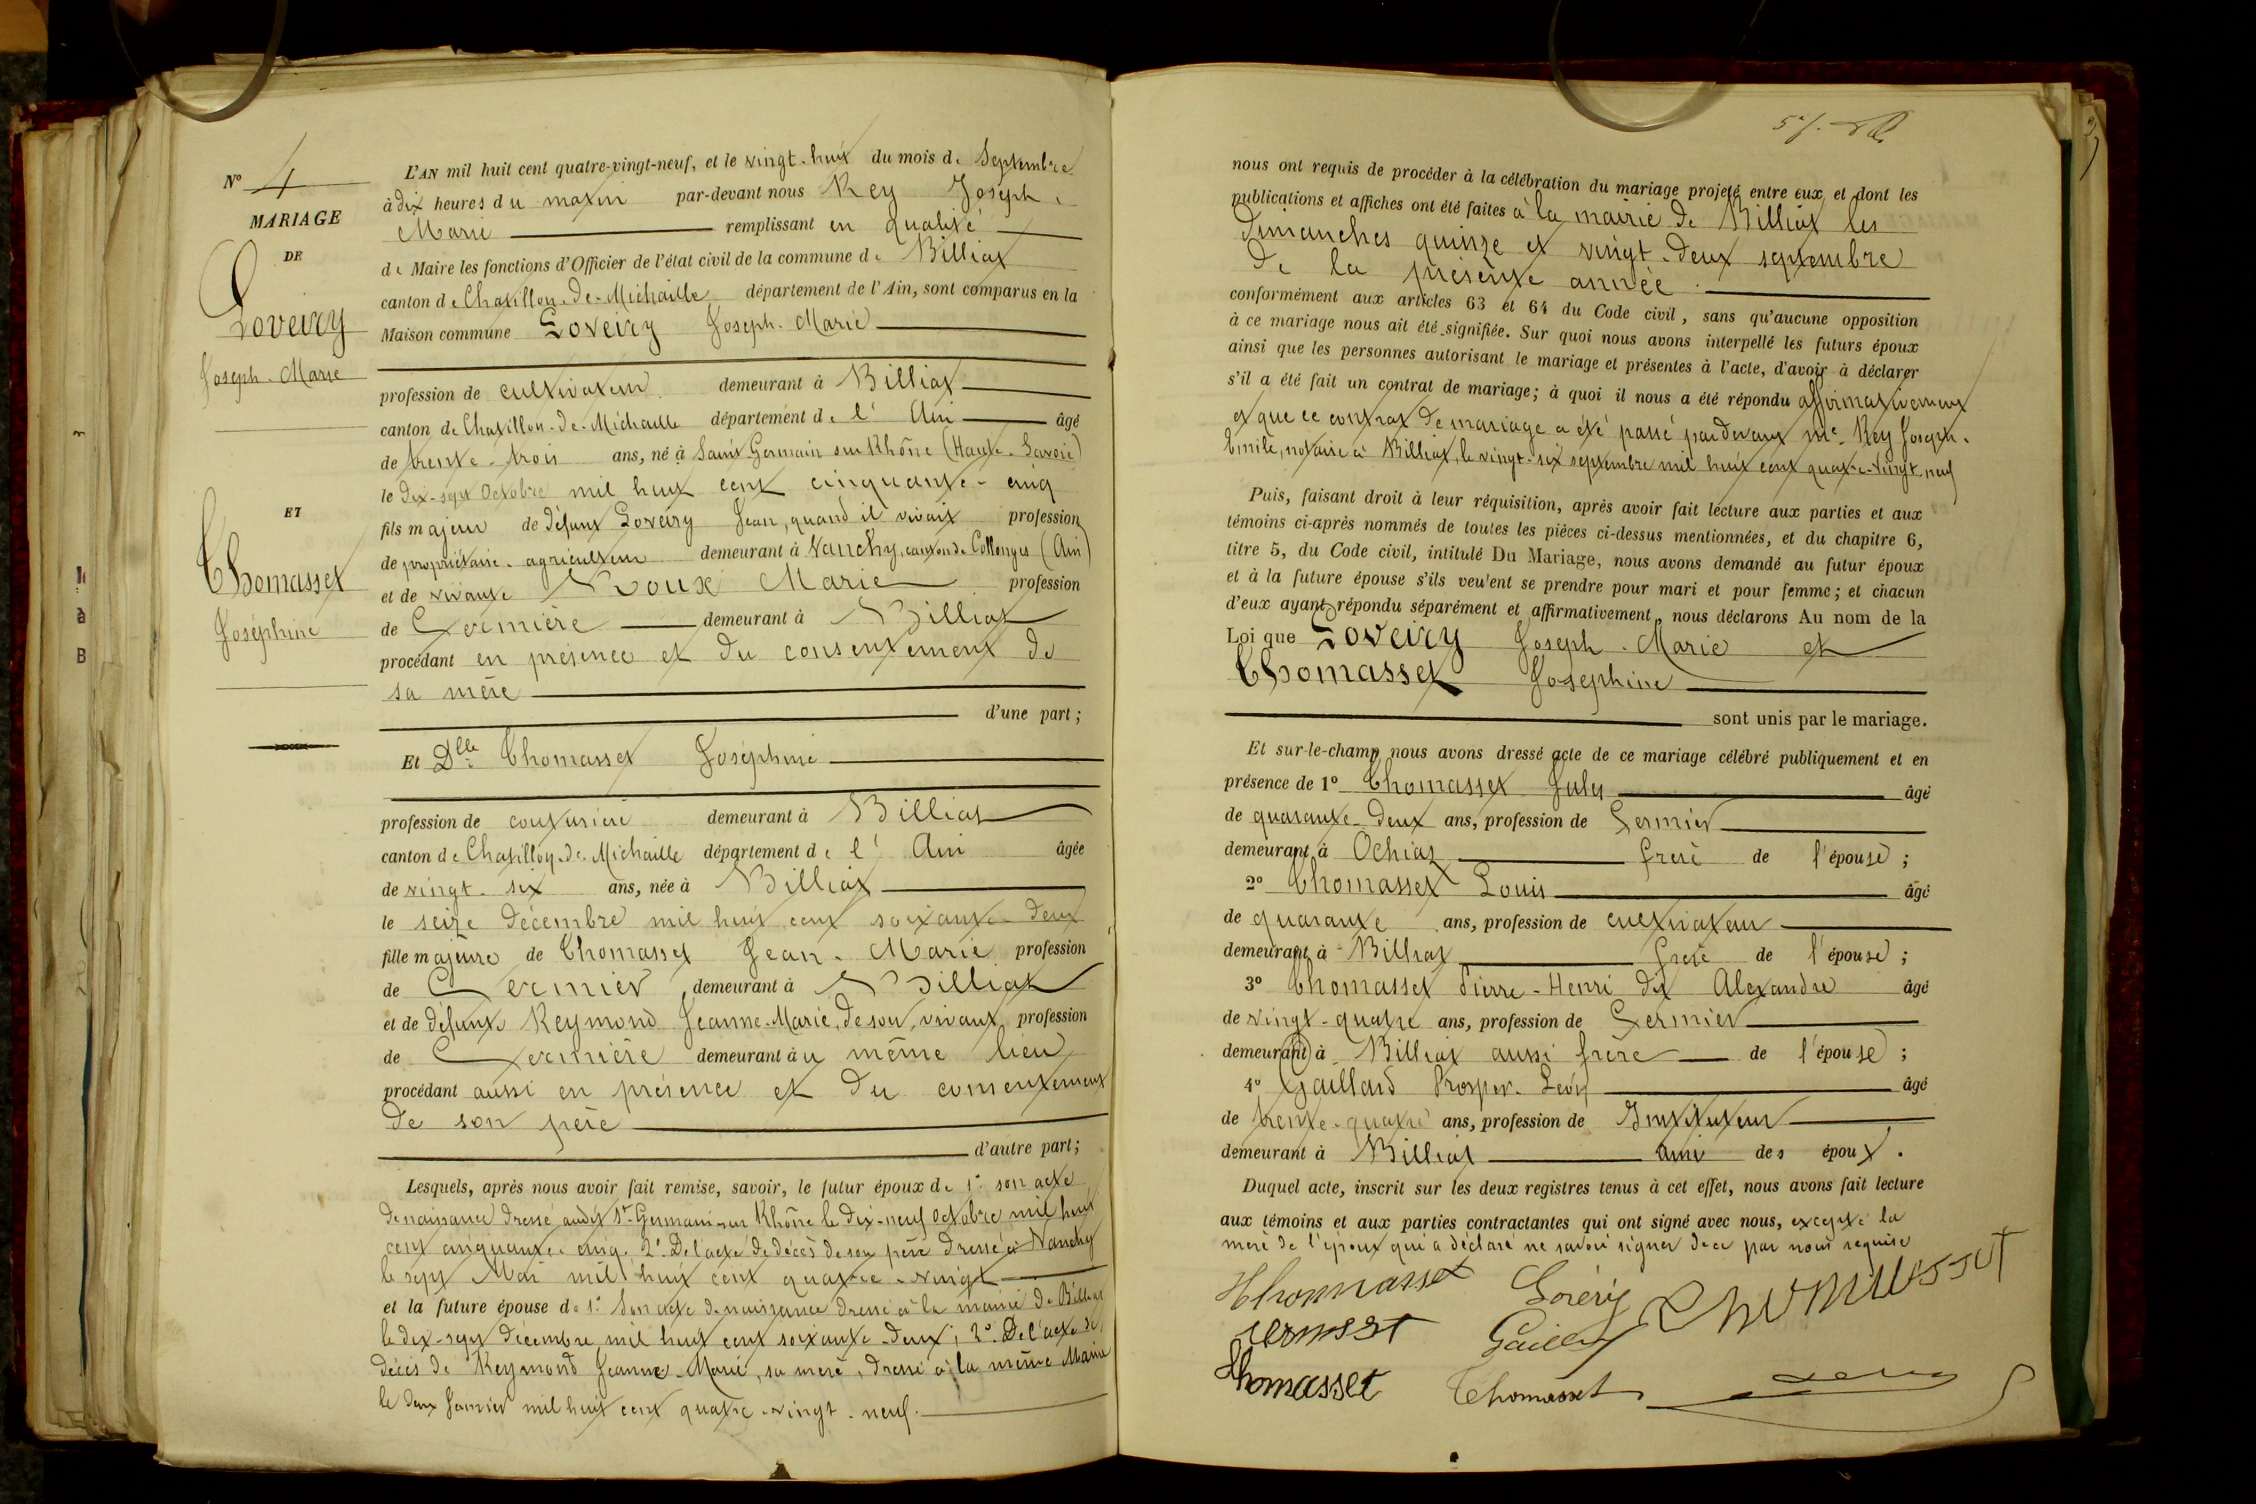 N° 4
MARIAGE
DE
Loveiry
Joseph-Marie
ET
Thomasset
Joséphine
L'AN mil huit cent quatre-vingt-neuf, et le vingt-huit du mois de Septembre
à dix heures du matin par-devant nous Rey Joseph-
Marie remplissant en qualité
de Maire les fonctions d'Officier de l'état civil de la commune de Billiat
canton de Chatillon-de-Michaille département de l'Ain, sont comparus en la
Maison commune Loveiry Joseph-Marie
profession de cultivateur demeurant à Billiat
canton de Chatillon-de-Michaille département de l'Ain âgé
de trente-trois ans, né à Saint Germain sur Rhône (Haute-Savoie)
le dix-sept Octobre mil huit cent cinquante-cinq
fils majeur de défunt Loveiry Jean, quand il vivait profession
de propriétaire-agriculteur demeurant à Vanchy, canton de Collonges (Ain)
et de vivante Roux Marie profession
de Fermière demeurant à Billiat
procédant en présence et du consentement de
sa mère
d'une part;
Et Dlle Thomasset Joséphine
profession de couturière demeurant à Billiat
canton de Chatillon-de-Michaille département de l'Ain âgée
de vingt-six ans, née à Billiat
le seize décembre mil huit cent soixante-deux
fille majeure de Thomasset Jean-Marie profession
de Fermier demeurant à Billiat
et de défunte Reymond Jeanne-Marie, de son vivant profession
de Fermière demeurant au même lieu
procédant aussi en présence et du consentement
de son père
d'autre part;
Lesquels, après nous avoir fait remise, savoir, le futur époux de 1° son acte
de naissance dressé audit St-Germain-sur Rhône le dix-neuf Octobre mil huit
cent cinquante-cinq. 2° De l'acte de décès de son père dressé à Vanchy
le sept Mai mil huit cent quatre-vingt
et la future épouse de 1° Son acte de naissance dressé à la mairie de Billiat
le dix-sept décembre mil huit cent soixante-deux; 2° De l'acte de
décès de Reymond Jeanne-Marie, sa mère, dressé à la même Mairie
le deux Janvier mil huit cent quatre-vingt-neuf.
nous ont requis de procéder à la célébration du mariage projeté entre eux et dont les
publications et affiches ont été faites à la mairie de Billiat les
dimanches quinze et vingt-deux septembre
de la présente année.
conformément aux articles 63 et 64 du Code civil, sans qu'aucune opposition
à ce mariage nous ait été signifiée. Sur quoi nous avons interpellé les futurs époux
ainsi que les personnes autorisant le mariage et présentes à l'acte, d'avoir à déclarer
s'il a été fait un contrat de mariage; à quoi il nous a été répondu affirmativement
et que ce contrat de mariage a été passé pardevant Me. Rey Joseph-
Emile, notaire à Billiat, le vingt-six septembre mil huit cent quatre-vingt neuf
Puis, faisant droit à leur réquisition, après avoir fait lecture aux parties et aux
témoins ci-après nommés de toutes les pièces ci-dessus mentionnées, et du chapitre 6,
titre 5, du Code civil, intitulé Du Mariage, nous avons demandé au futur époux
et à la future épouse s'ils veulent se prendre pour mari et pour femme; et chacun
d'eux ayant répondu séparément et affirmativement, nous déclarons Au nom de la
Loi que Loveiry Joseph-Marie et
Thomasset Josephine
sont unis par le mariage.
Et sur-le-champ nous avons dressé acte de ce mariage célébré publiquement et en
présence de 1° Thomasset Jules âgé
de quarante-deux ans, profession de Fermier
demeurant à Ochiaz frère de l'épouse;
2° Thomasset Louis âgé
de quarante ans, profession de cultivateur
demeurant à Billiat frère de l'épouse;
3° Thomasset Pierre-Henri dit Alexandre âgé
de vingt-quatre ans, profession de Fermier
demeurant à Billiat aussi frère de l'épouse;
4° Gaillard Prosper-Léon âgé
de trente-quatre ans, profession de Instituteur
demeurant à Billiat ami des époux.
Duquel acte, inscrit sur les deux registres tenus à cet effet, nous avons fait lecture
aux témoins et aux parties contractantes qui ont signé avec nous, excepté la
mère de l'époux qui a déclaré ne savoir signer de ce par nous requise
Thomasset Lovéry Thomasset
Gaillard
Thomasset Thomasset